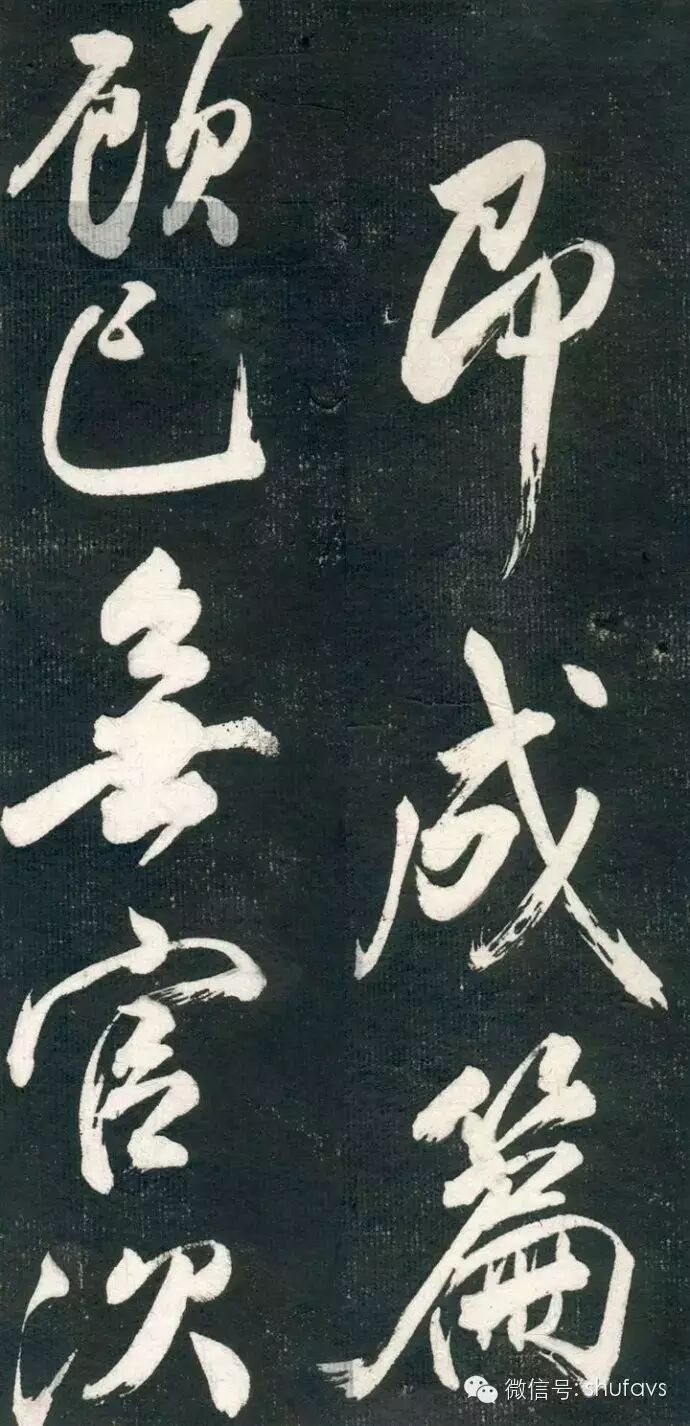 即成篇
顧己無官次
微信号: shufavs